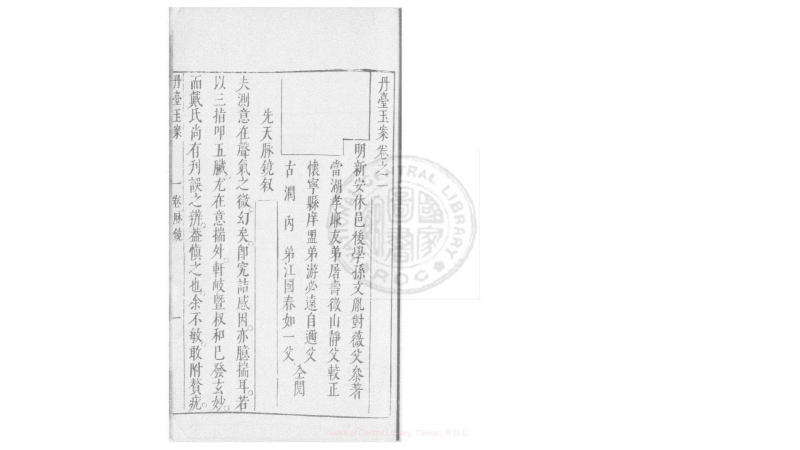 丹臺玉案卷之一
明新安休邑後學孫文胤對薇父叅著
當湖孝廉友弟屠壽徵山靜父較正
懷寧縣庠盟弟游必遠自邇父
古潤內弟江國春如一父 仝閱
先天脉鏡叙
夫測意在聲氣之微幻矣。卽究詰感因。亦臆揣耳。若
以三指叩五臟。尤在意揣外。軒岐暨叔和已發玄妙。
而戴氏尚有刋誤之辨。葢慎之也。余不敏。敢附贅疣。
丹臺玉案 一卷脉鏡 一
CENTRAL LIBRARY
國家圖書
R.O.C